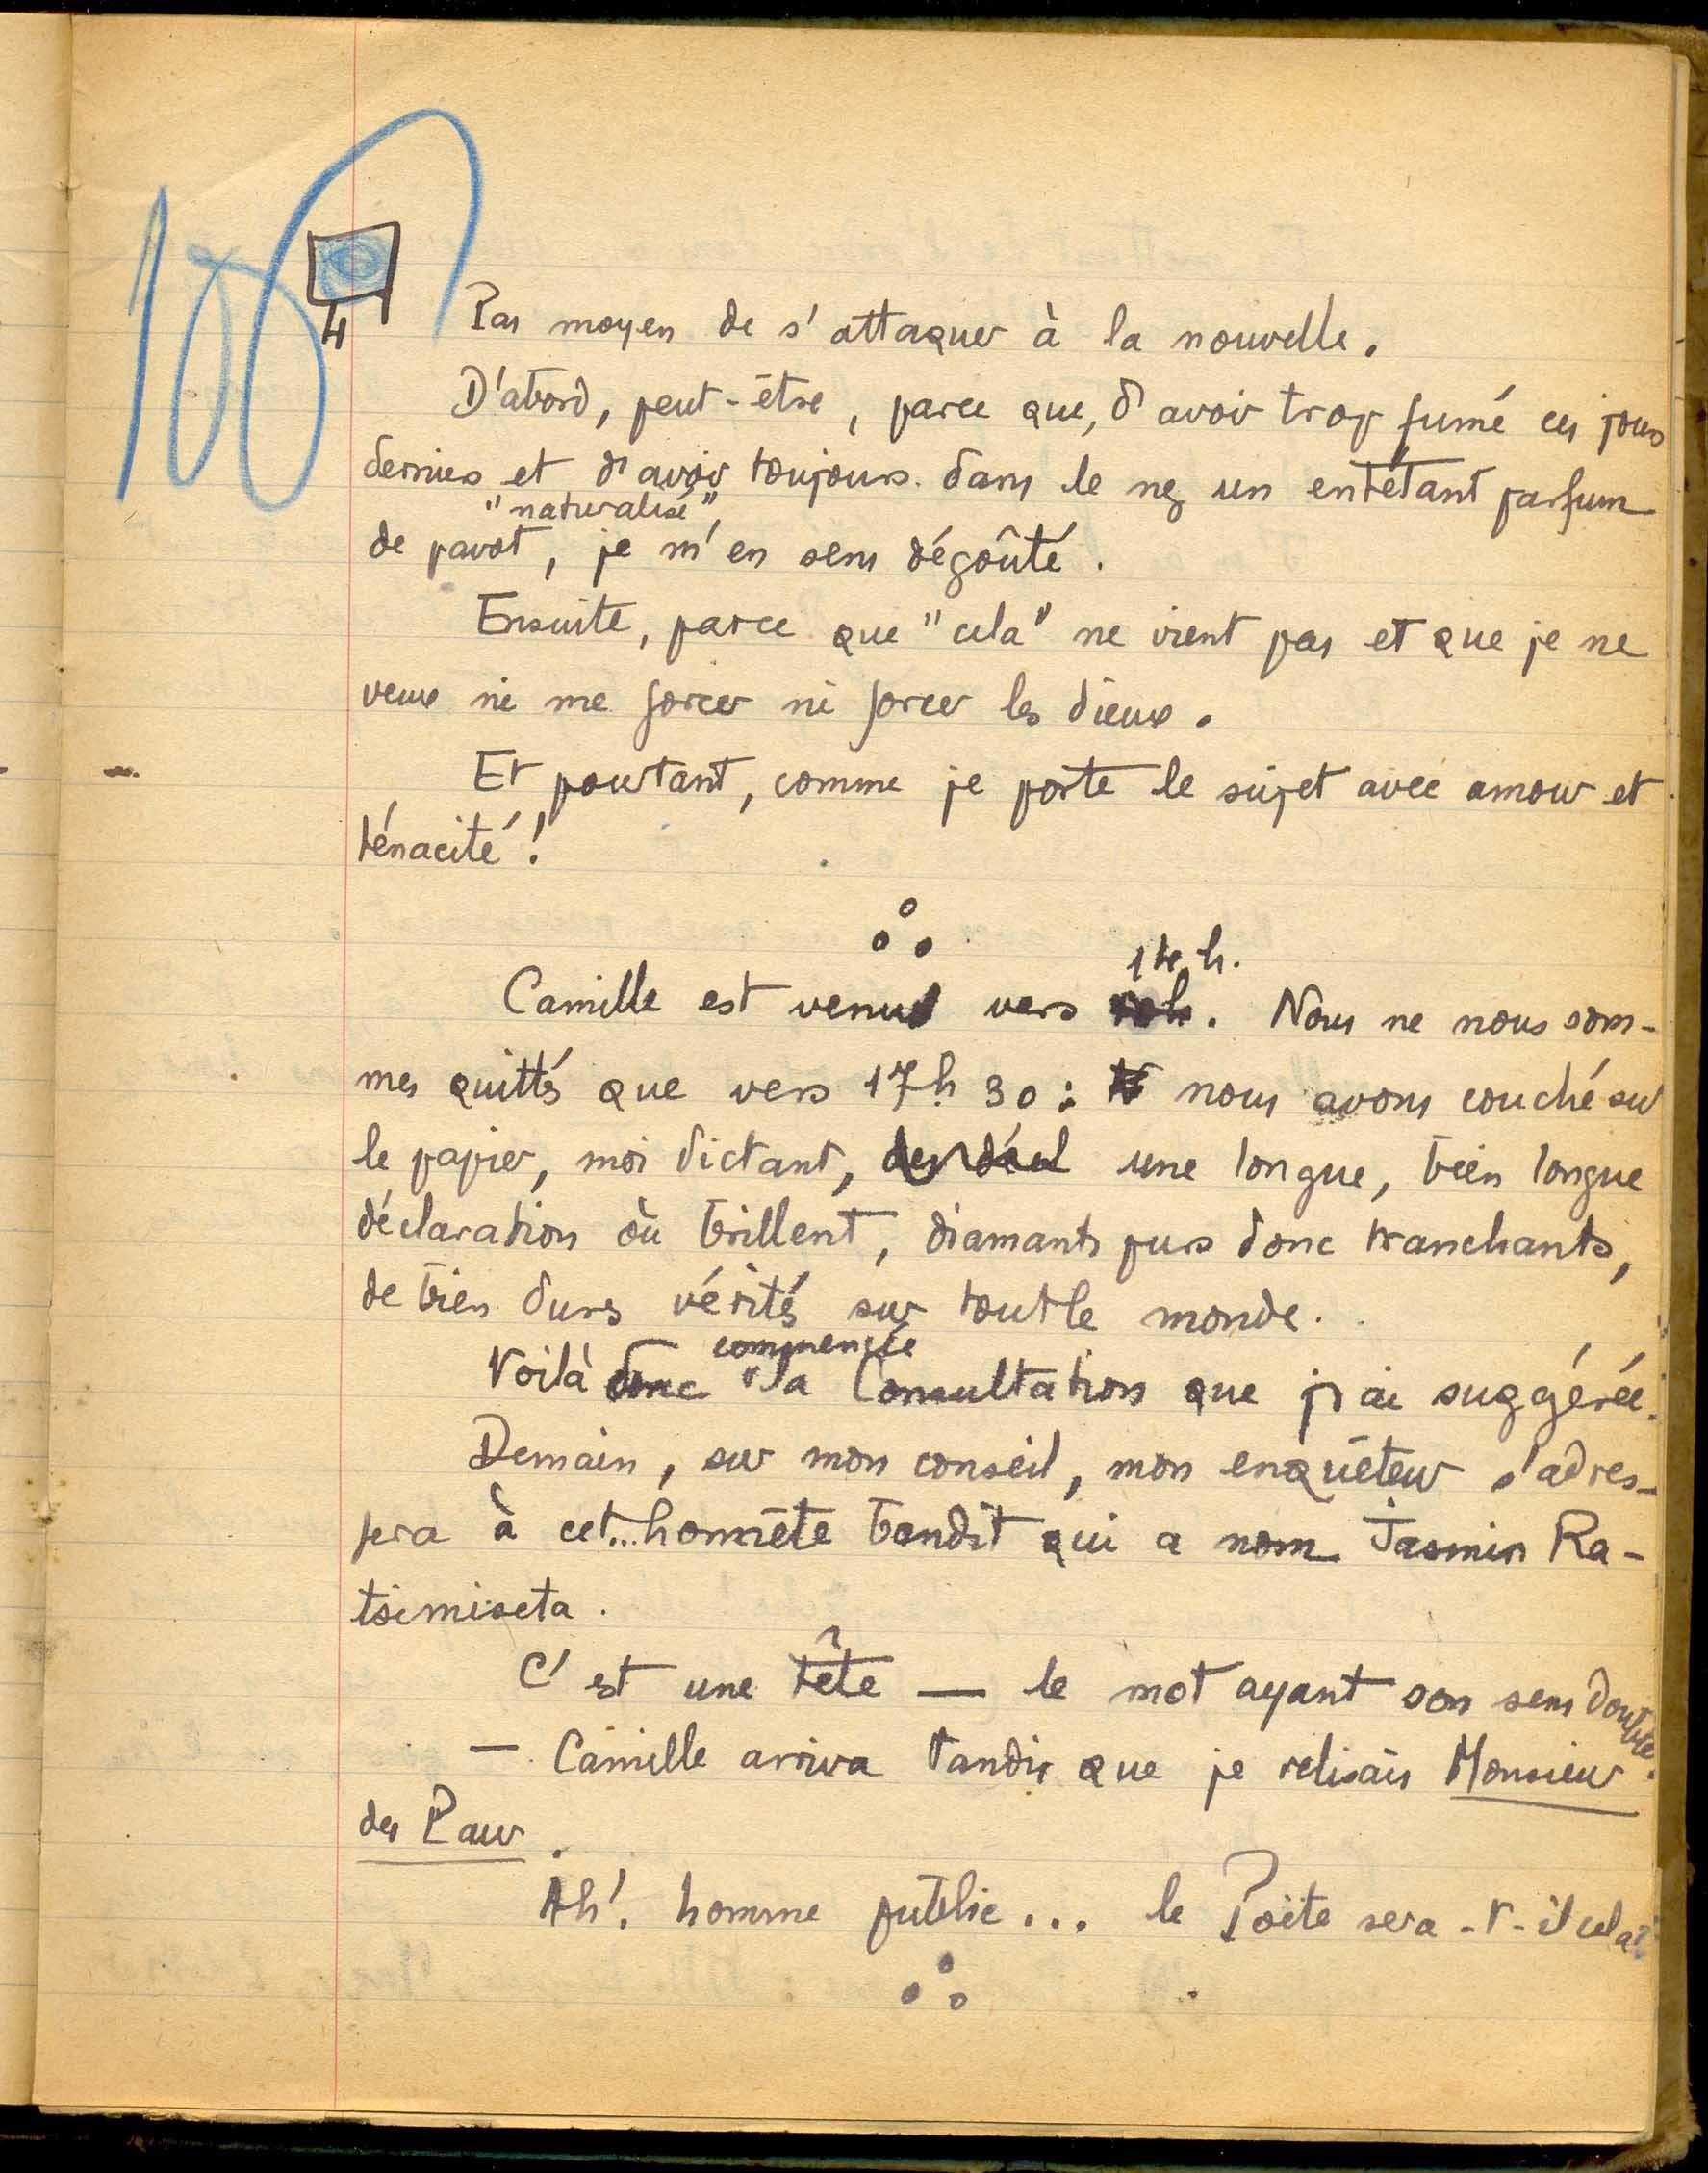 100
4
Pas moyen de s'attaquer à la nouvelle.
D'abord, peut-être, parce que, d'avoir trop fumé ces jours
derniers et d'avoir toujours dans le nez un entêtant parfum
"naturalisé",
de pavot, je m'en sens dégoûté.
Ensuite, parce que "cela" ne vient pas et que je ne
veux ni me forcer ni forcer les dieux.
Et pourtant, comme je porte le sujet avec amour et
ténacité!
14 h.
Camille est venu vers . Nous ne nous som-
mes quittés que vers 17h 30: nous avons couché sur
le papier, moi dictant, une longue, bien longue
déclaration où brillent, diamants purs donc tranchants,
de bien durs vérités sur tout le monde.
commencée
Voilà donc la Consultation que j'ai suggérée.
Demain, sur mon conseil, mon enquêteur s'adres-
sera à cet... honnête bandit qui a nom Jasmin Ra-
tsimiseta.
C'est une tête — le mot ayant son sens double.
— Camille arriva tandis que je relisais Monsieur
des Paur.
Ah! homme public... le Poète sera-t-il cela?